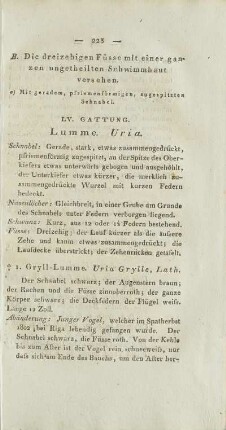 — 228 —
B. Die dreizehigen Füsse mit einer gan-
zen ungetheilten Schwimmhaut
versehen.
a) Mit geradem, pfriemenförmigen, zugespitzten
Schnabel.
LV. GATTUNG.
Lumme. Uria.
Schnabel: Gerade, stark, etwas zusammengedrückt,
pfriemenförmig zugespitzt, an der Spitze des Ober-
kiefers etwas unterwärts gebogen und ausgekehlt,
der Unterkiefer etwas kürzer, die merklich zu-
sammengedrückte Wurzel mit kurzen Federn
bedeckt.
Nasenlöcher: Gleichbreit, in einer Grube am Grunde
des Schnabels unter Federn verborgen liegend.
Schwanz: Kurz, aus 12 oder 14 Federn bestehend.
Füsse: Dreizehig; der Lauf kürzer als die äußere
Zehe und kann etwas zusammengedrückt; die
Fußbedeckung übersetzt; der Zehenrücken getafelt.
1. Gryll-Lumme. Uria Grylle, Lath.
Der Schnabel schwarz; der Augenstern braun;
der Rachen und die Füsse zinnoberroth; der ganze
Körper schwarz; die Deckfedern der Flügel weiß.
Länge 12 Zoll.
Abänderung: Junger Vogel, welcher im Spatherbst
1802 bei Riga lebendig gefangen wurde. Der
Schnabel schwarz, die Füsse roth. Von der Kehle
bis zum After ist der Vogel rein schneeweiß, nur
daß sich am Ende des Bauchs, um den After her-